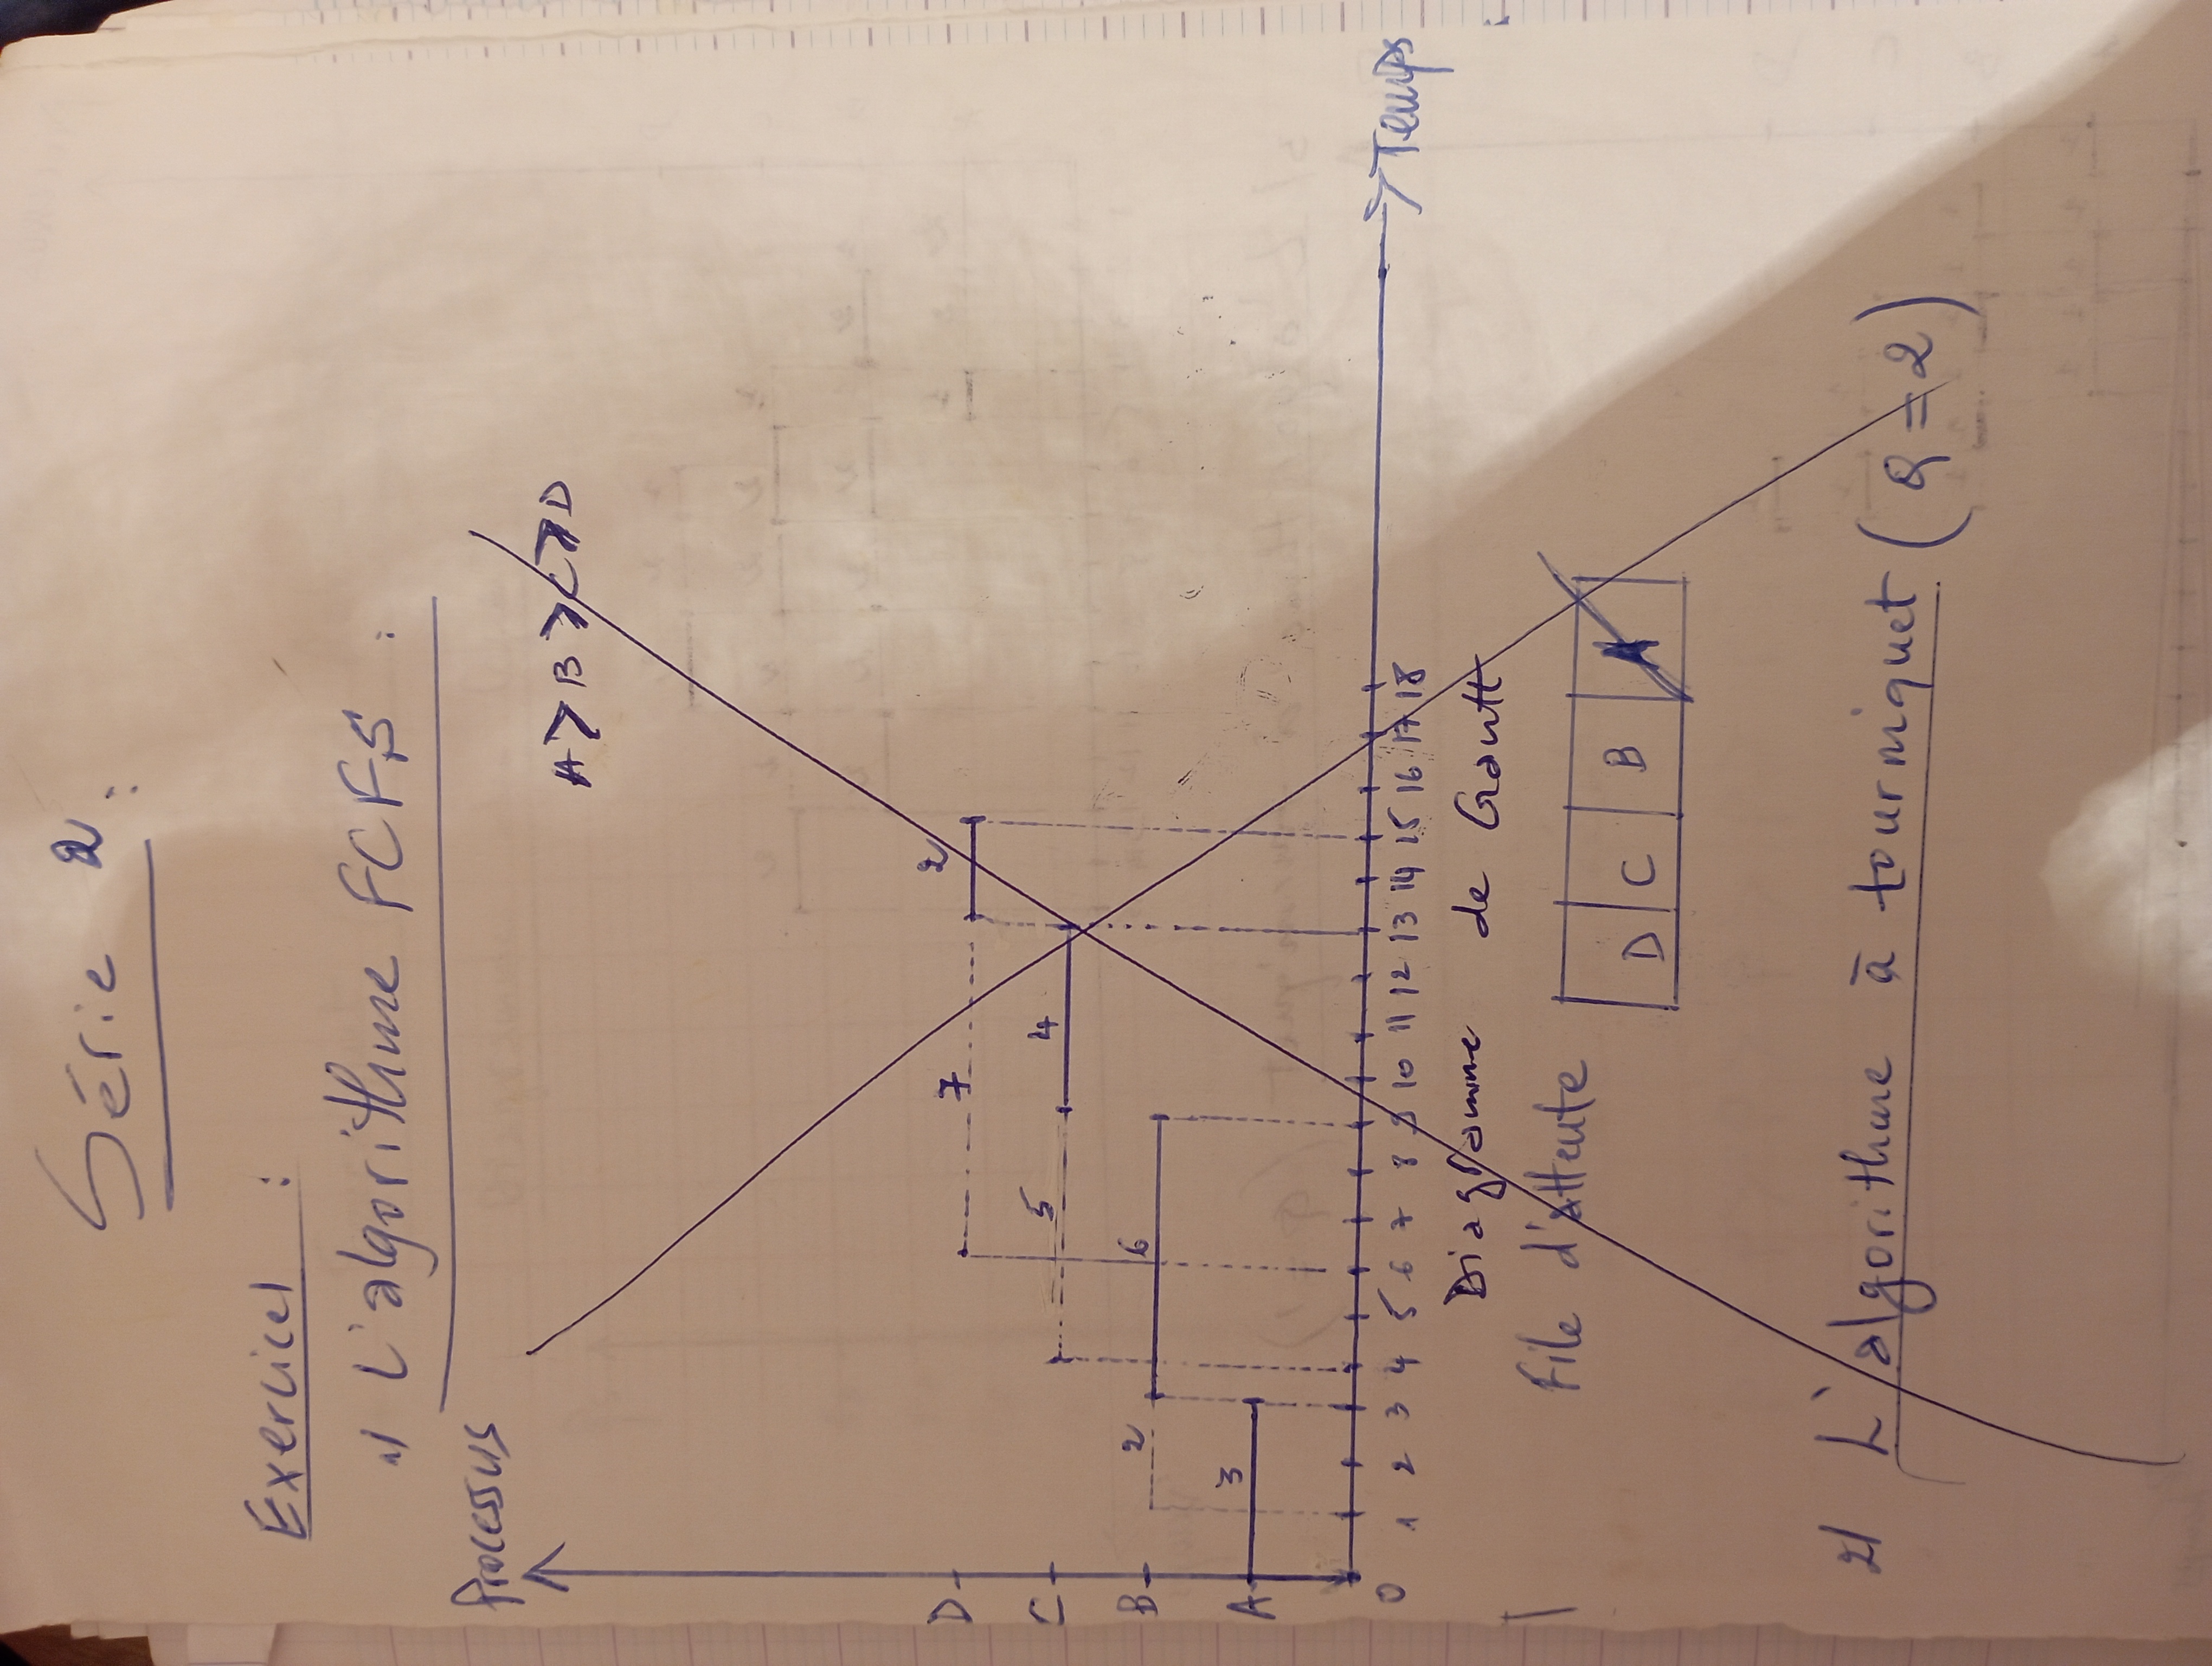 Série 2 :
Exercice1 :
1/ L'algorithme FCFS :
Processus
A > B > C > D
D 7 2
C 5 4
B 2 6
A 3
0 1 2 3 4 5 6 7 8 9 10 11 12 13 14 15 16 17 18 Temps
Diagramme de Gantt
File d'attente D C B A
2/ L'algorithme à tourniquet ( Q = 2 )